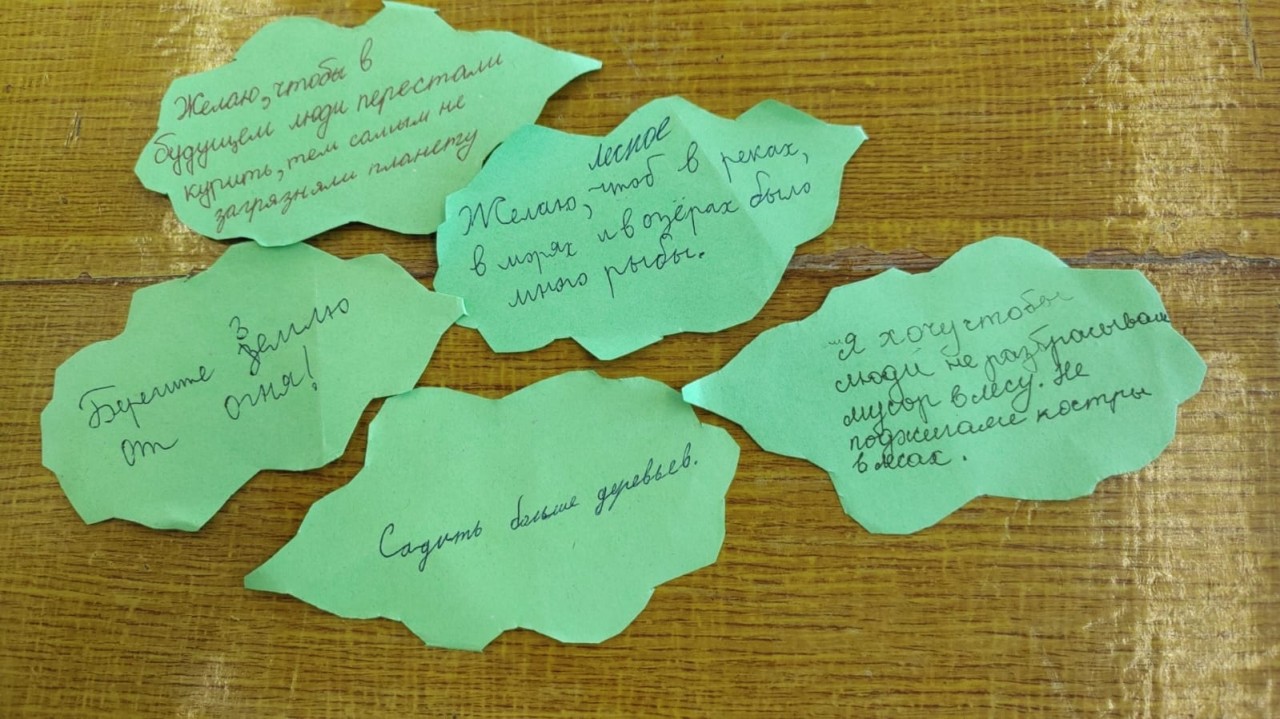 Желаю, чтобы в
будущем люди перестали
курить, тем самым не
загрязняли планету
лесное
Желаю, чтоб в реках,
в морях и в озёрах было
много рыбы.
Берегите Землю
от огня!
Садить больше деревьев.
"Я хочу чтобы
люди не разбрасывали
мусор в лесу. Не
поджигали костры
в лесах.